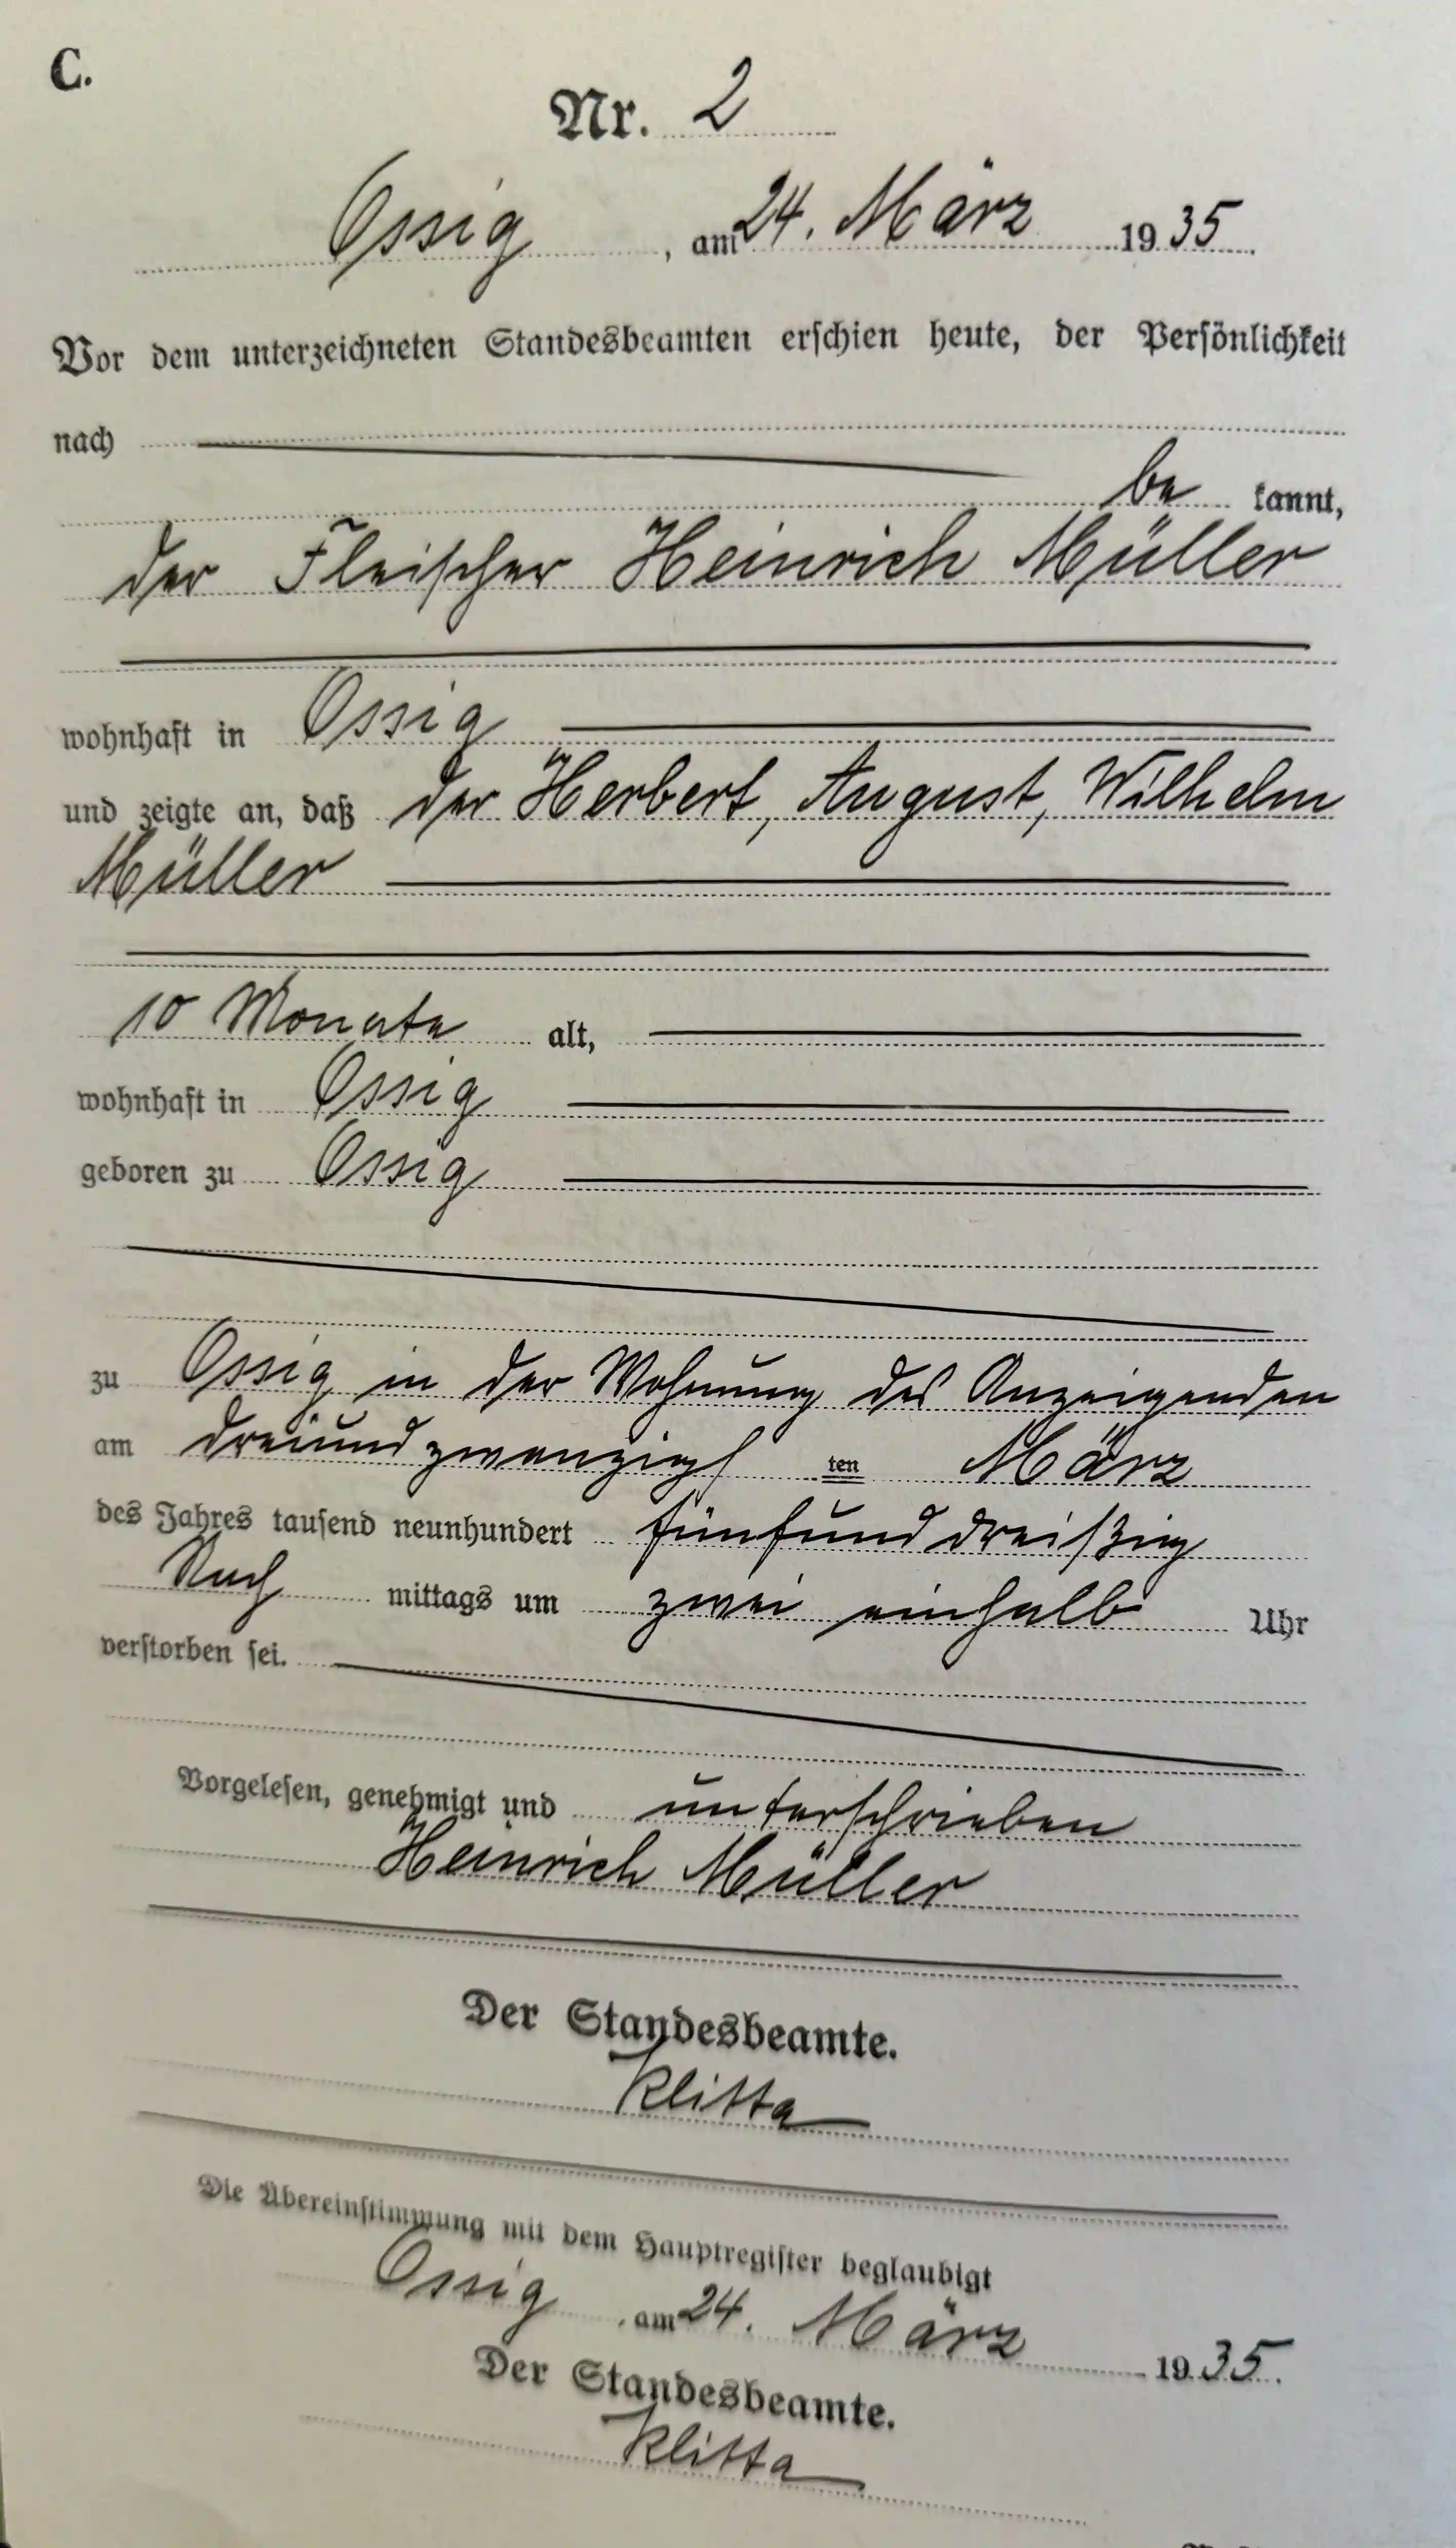 C.
Nr. 2
Ossig, am 24. März 1935
Vor dem unterzeichneten Standesbeamten erschien heute, der Persönlichkeit
nach
be kannt,
der Fleischer Heinrich Müller
wohnhaft in Ossig
und zeigte an, daß der Herbert, August, Wilhelm
Müller
10 Monate alt,
wohnhaft in Ossig
geboren zu Ossig
zu Ossig in der Wohnung des Anzeigenden
am dreiundzwanzigsten März
des Jahres tausend neunhundert fünfunddreißig
Nach mittags um zwei einhalb Uhr
verstorben sei.
Vorgelesen, genehmigt und unterschrieben
Heinrich Müller
Der Standesbeamte.
Klitta
Die Übereinstimmung mit dem Hauptregister beglaubigt
Ossig, am 24. März 1935.
Der Standesbeamte.
Klitta